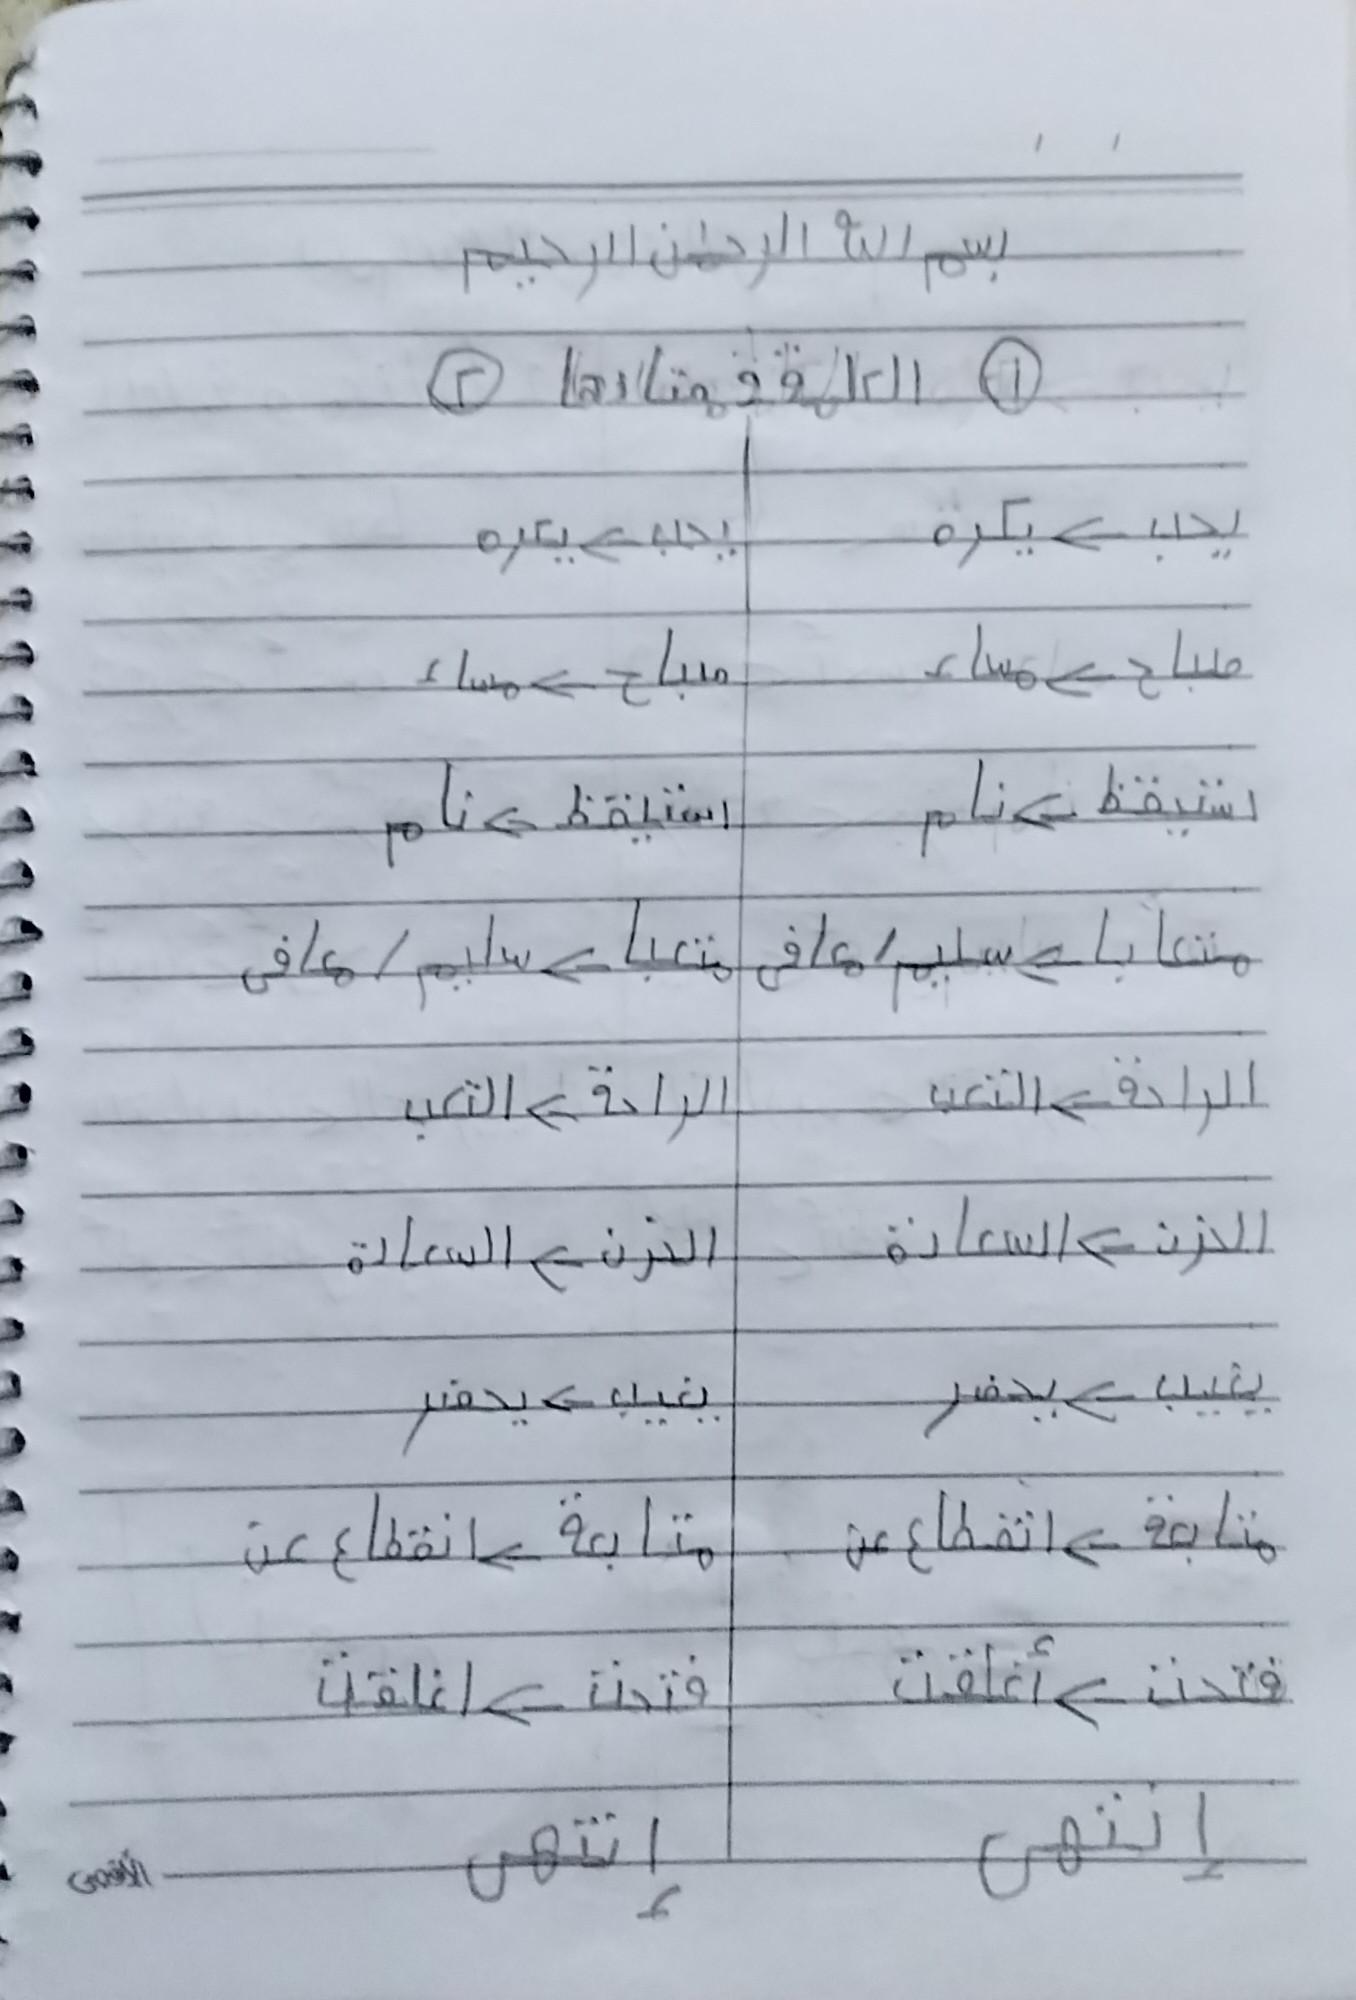 بسم الله الرحمن الرحيم
١ الكلمة ومضادها ٢
يحب -> يكره يحب -> يكره
صباح -> مساء صباح -> مساء
استيقظ -> نام استيقظ -> نام
متعابا -> سليم/معافى متعبا -> سليم/معافى
الراحة -> التعب الراحة -> التعب
الحزن -> السعادة الحزن -> السعادة
يغيب -> يحضر يغيب -> يحضر
متابعة -> انقطاع عن متابعة -> انقطاع عن
فتحت -> أغلقت فتحت -> اغلقت
إنتهى إنتهى
الأقصى